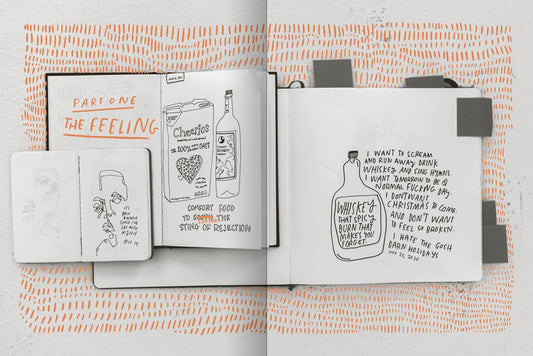 PART ONE
THE FEELING
Cheerios
100% WHOLE GRAIN OATS
COMFORT FOOD
TO SOOTHE THE
STING OF REJECTION
OCT 19
WHISKEY
THAT SPICY
BURN THAT
MAKES YOU
FORGET.
I WANT TO SCREAM
AND RUN AWAY, DRINK
WHISKEY AND SING HYMNS.
I WANT TOMORROW TO BE A
NORMAL FUCKING DAY.
I DON'T WANT
CHRISTMAS TO COME.
AND DON'T WANT
TO FEEL SO BROKEN.
I HATE THE GOSH
DARN HOLIDAYS
NOV 26, 2020